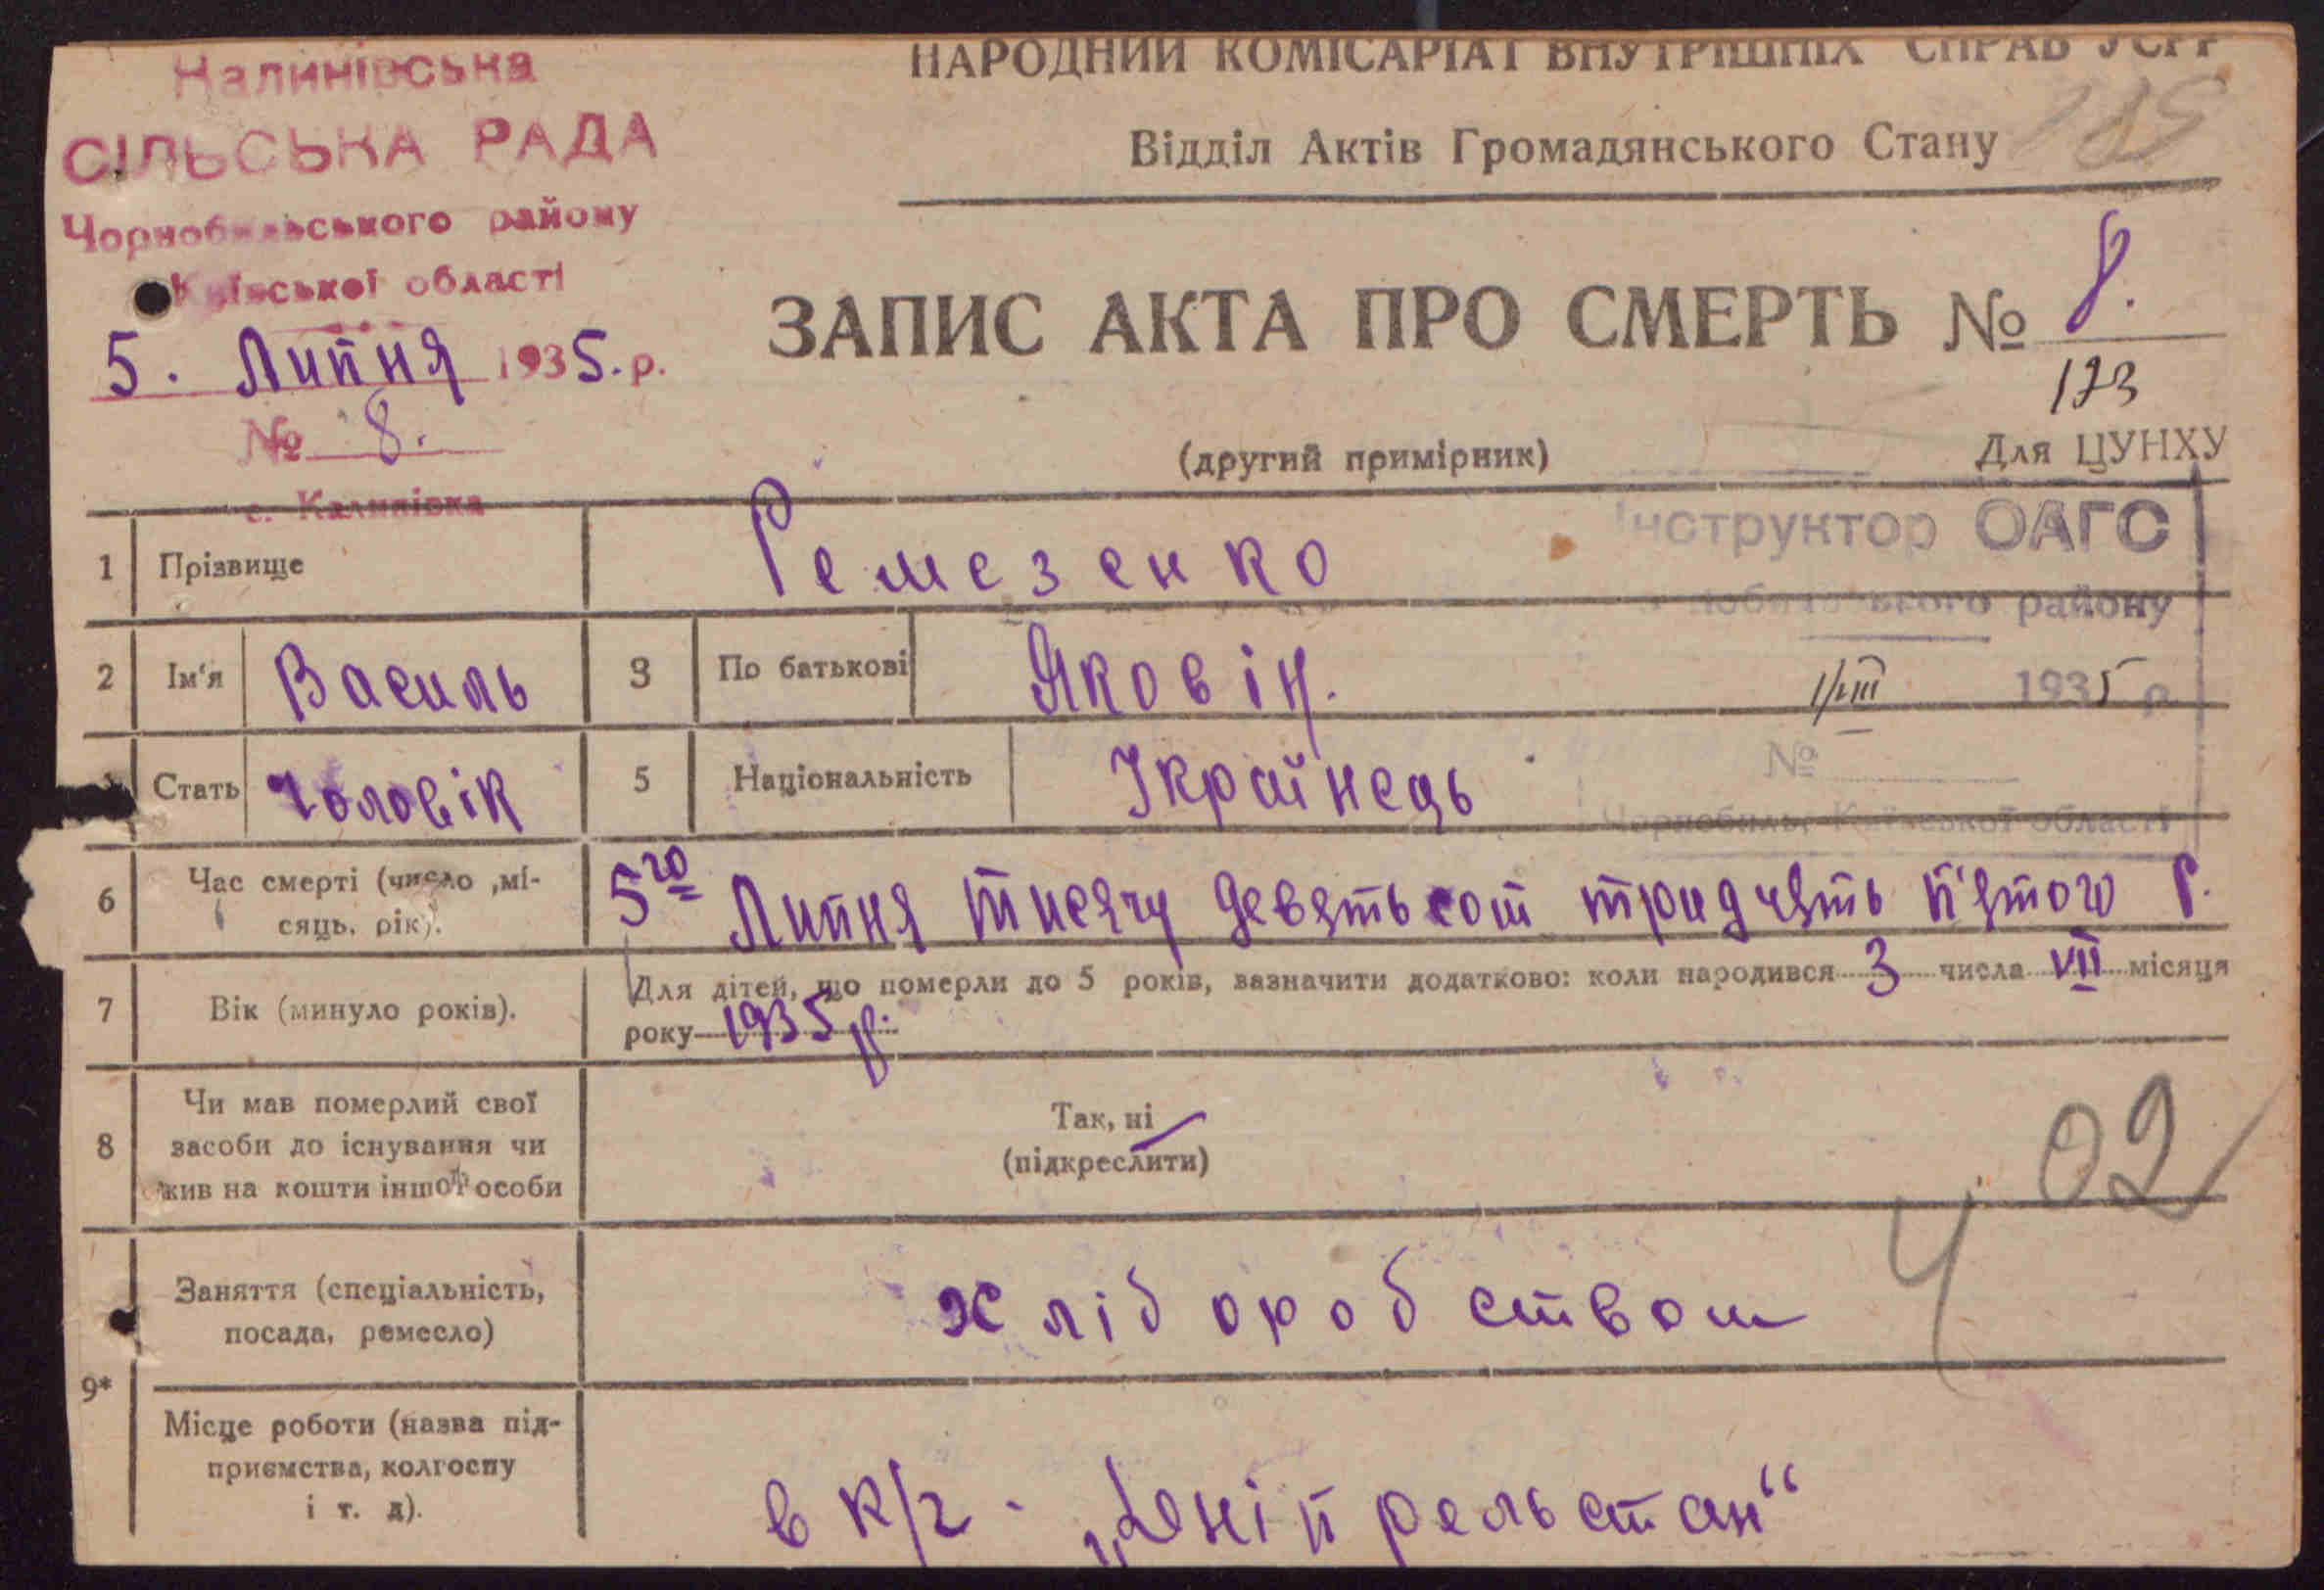 Калинівська
СІЛЬСЬКА РАДА
Чорнобильського району
Київської області
5. Липня 1935. р.
№ 8.
с. Калинівка
НАРОДНИЙ КОМІСАРІАТ ВНУТРІШНІХ СПРАВ УСРР
Відділ Актів Громадянського Стану
ЗАПИС АКТА ПРО СМЕРТЬ № 8.
123
(другий примірник)
Для ЦУНХУ
Інструктор ОАГС
Чорнобильського району
1/VIII 1935 р.
№
Чорнобиль, Київської області
1 Прізвище Ремезенко
2 Ім'я Василь 3 По батькові Яковіч.
Стать Чоловік 5 Національність Українець
6 Час смерті (число ,мі-
сяць, рік). 5го Липня тисячу девятьсот тридчять п'ятого р.
7 Вік (минуло років). Для дітей, що померли до 5 років, зазначити додатково: коли народився 3 числа VII місяця
року 1935 р.
8 Чи мав померлий свої
засоби до існування чи
жив на кошти іншої особи
Так, ні
(підкреслити)
02
4
9*
Заняття (спеціальність,
посада, ремесло) хліборобством
Місце роботи (назва під-
приємства, колгоспу
і т. д). в к/г - „Дніпрельстан“